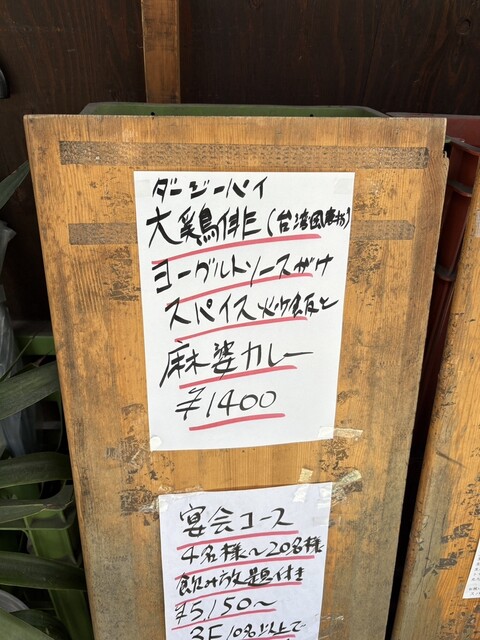 ダージーパイ
大鶏俳(台湾風唐揚)
ヨーグルトソースがけ
スパイス炒飯と
麻婆カレー
¥1400
宴会コース
4名様～20名様
飲み放題付き
¥5,150～
3F10名以上で